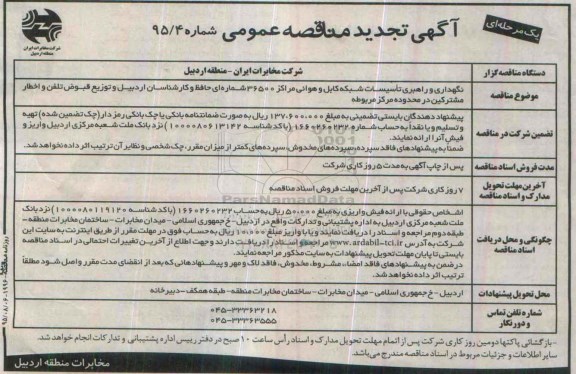 یک مرحله‌ای
آگهی تجدید مناقصه عمومی شماره ۹۵/۴
شرکت مخابرات ایران
منطقه اردبیل
دستگاه مناقصه گزار
شرکت مخابرات ایران - منطقه اردبیل
موضوع مناقصه
نگهداری و راهبری تأسیسات شبکه کابل و هوائی مراکز ۳۶۵۰۰ شماره‌ای حافظ و کارشناسان اردبیل و توزیع قبوض تلفن و اخطار
مشترکین در محدوده مرکز مربوطه
تضمین شرکت در مناقصه
پیشنهاد دهندگان بایستی تضمینی به مبلغ ۱۳۷،۶۰۰،۰۰۰ ریال به صورت ضمانتنامه بانکی یا چک بانکی رمز دار (چک تضمین شده) تهیه
و تسلیم و یا نقداً به حساب شماره ۱۶۶۰۲۶۰۲۳۲ (با کد شناسه ۱۰۰۰۰۸۰۶۱۳۱۴۲) نزد بانک ملت شعبه مرکزی اردبیل واریز و
فیش آنرا ارائه نمایند.
ضمناً به پیشنهادهای فاقد سپرده، سپرده‌های مخدوش، سپرده‌های کمتر از میزان مقرر، چک شخصی و نظایر آن ترتیب اثر داده نخواهد شد.
مهلت فروش اسناد مناقصه
پس از چاپ آگهی به مدت ۵ روز کاری شرکت
آخرین مهلت تحویل
مدارک و اسناد مناقصه
۷ روز کاری شرکت پس از آخرین مهلت فروش اسناد مناقصه
چگونگی و محل دریافت
اسناد مناقصه
اشخاص حقوقی با ارائه فیش واریزی به مبلغ ۵۰۰،۰۰۰ ریال به حساب ۱۶۶۰۲۶۰۲۳۲ (با کد شناسه ۱۰۰۰۰۸۰۱۱۹۱۲۰) نزد بانک
ملت شعبه مرکزی اردبیل به اداره پشتیبانی و تدارکات واقع در اردبیل - خ جمهوری اسلامی - میدان مخابرات - ساختمان مخابرات منطقه -
طبقه دوم مراجعه و اسناد را دریافت نمایند و یا با واریز مبلغ ریال به حساب فوق در مهلت مقرر از طریق اینترنت به سایت این
شرکت به آدرس www.ardabil-tci.ir مراجعه و اسناد را دریافت دارند و جهت اطلاع از آخرین تغییرات احتمالی در اسناد مناقصه
بایستی تا پایان مهلت تحویل پیشنهادات به سایت مذکور مراجعه نمایند.
در ضمن به پیشنهادهای فاقد امضاء، مشروط، مخدوش، فاقد لاک و مهر و پیشنهاداتی که بعد از انقضای مدت مقرر واصل شود مطلقاً
ترتیب اثر داده نخواهد شد.
محل تحویل پیشنهادات
اردبیل - خ جمهوری اسلامی - میدان مخابرات - ساختمان مخابرات منطقه - طبقه همکف - دبیرخانه
شماره تلفن تماس
و دورنگار
۰۴۵-۳۳۳۶۳۲۱۸
۰۴۵-۳۳۳۶۳۵۵۵
- بازگشائی پاکتها دومین روز کاری شرکت پس از اتمام مهلت تحویل مدارک و اسناد رأس ساعت ۱۰ صبح در دفتر رییس اداره پشتیبانی و تدارکات انجام خواهد شد.
سایر اطلاعات و جزئیات مربوط در اسناد مناقصه مندرج می‌باشد.
مخابرات منطقه اردبیل
ParsNamadData